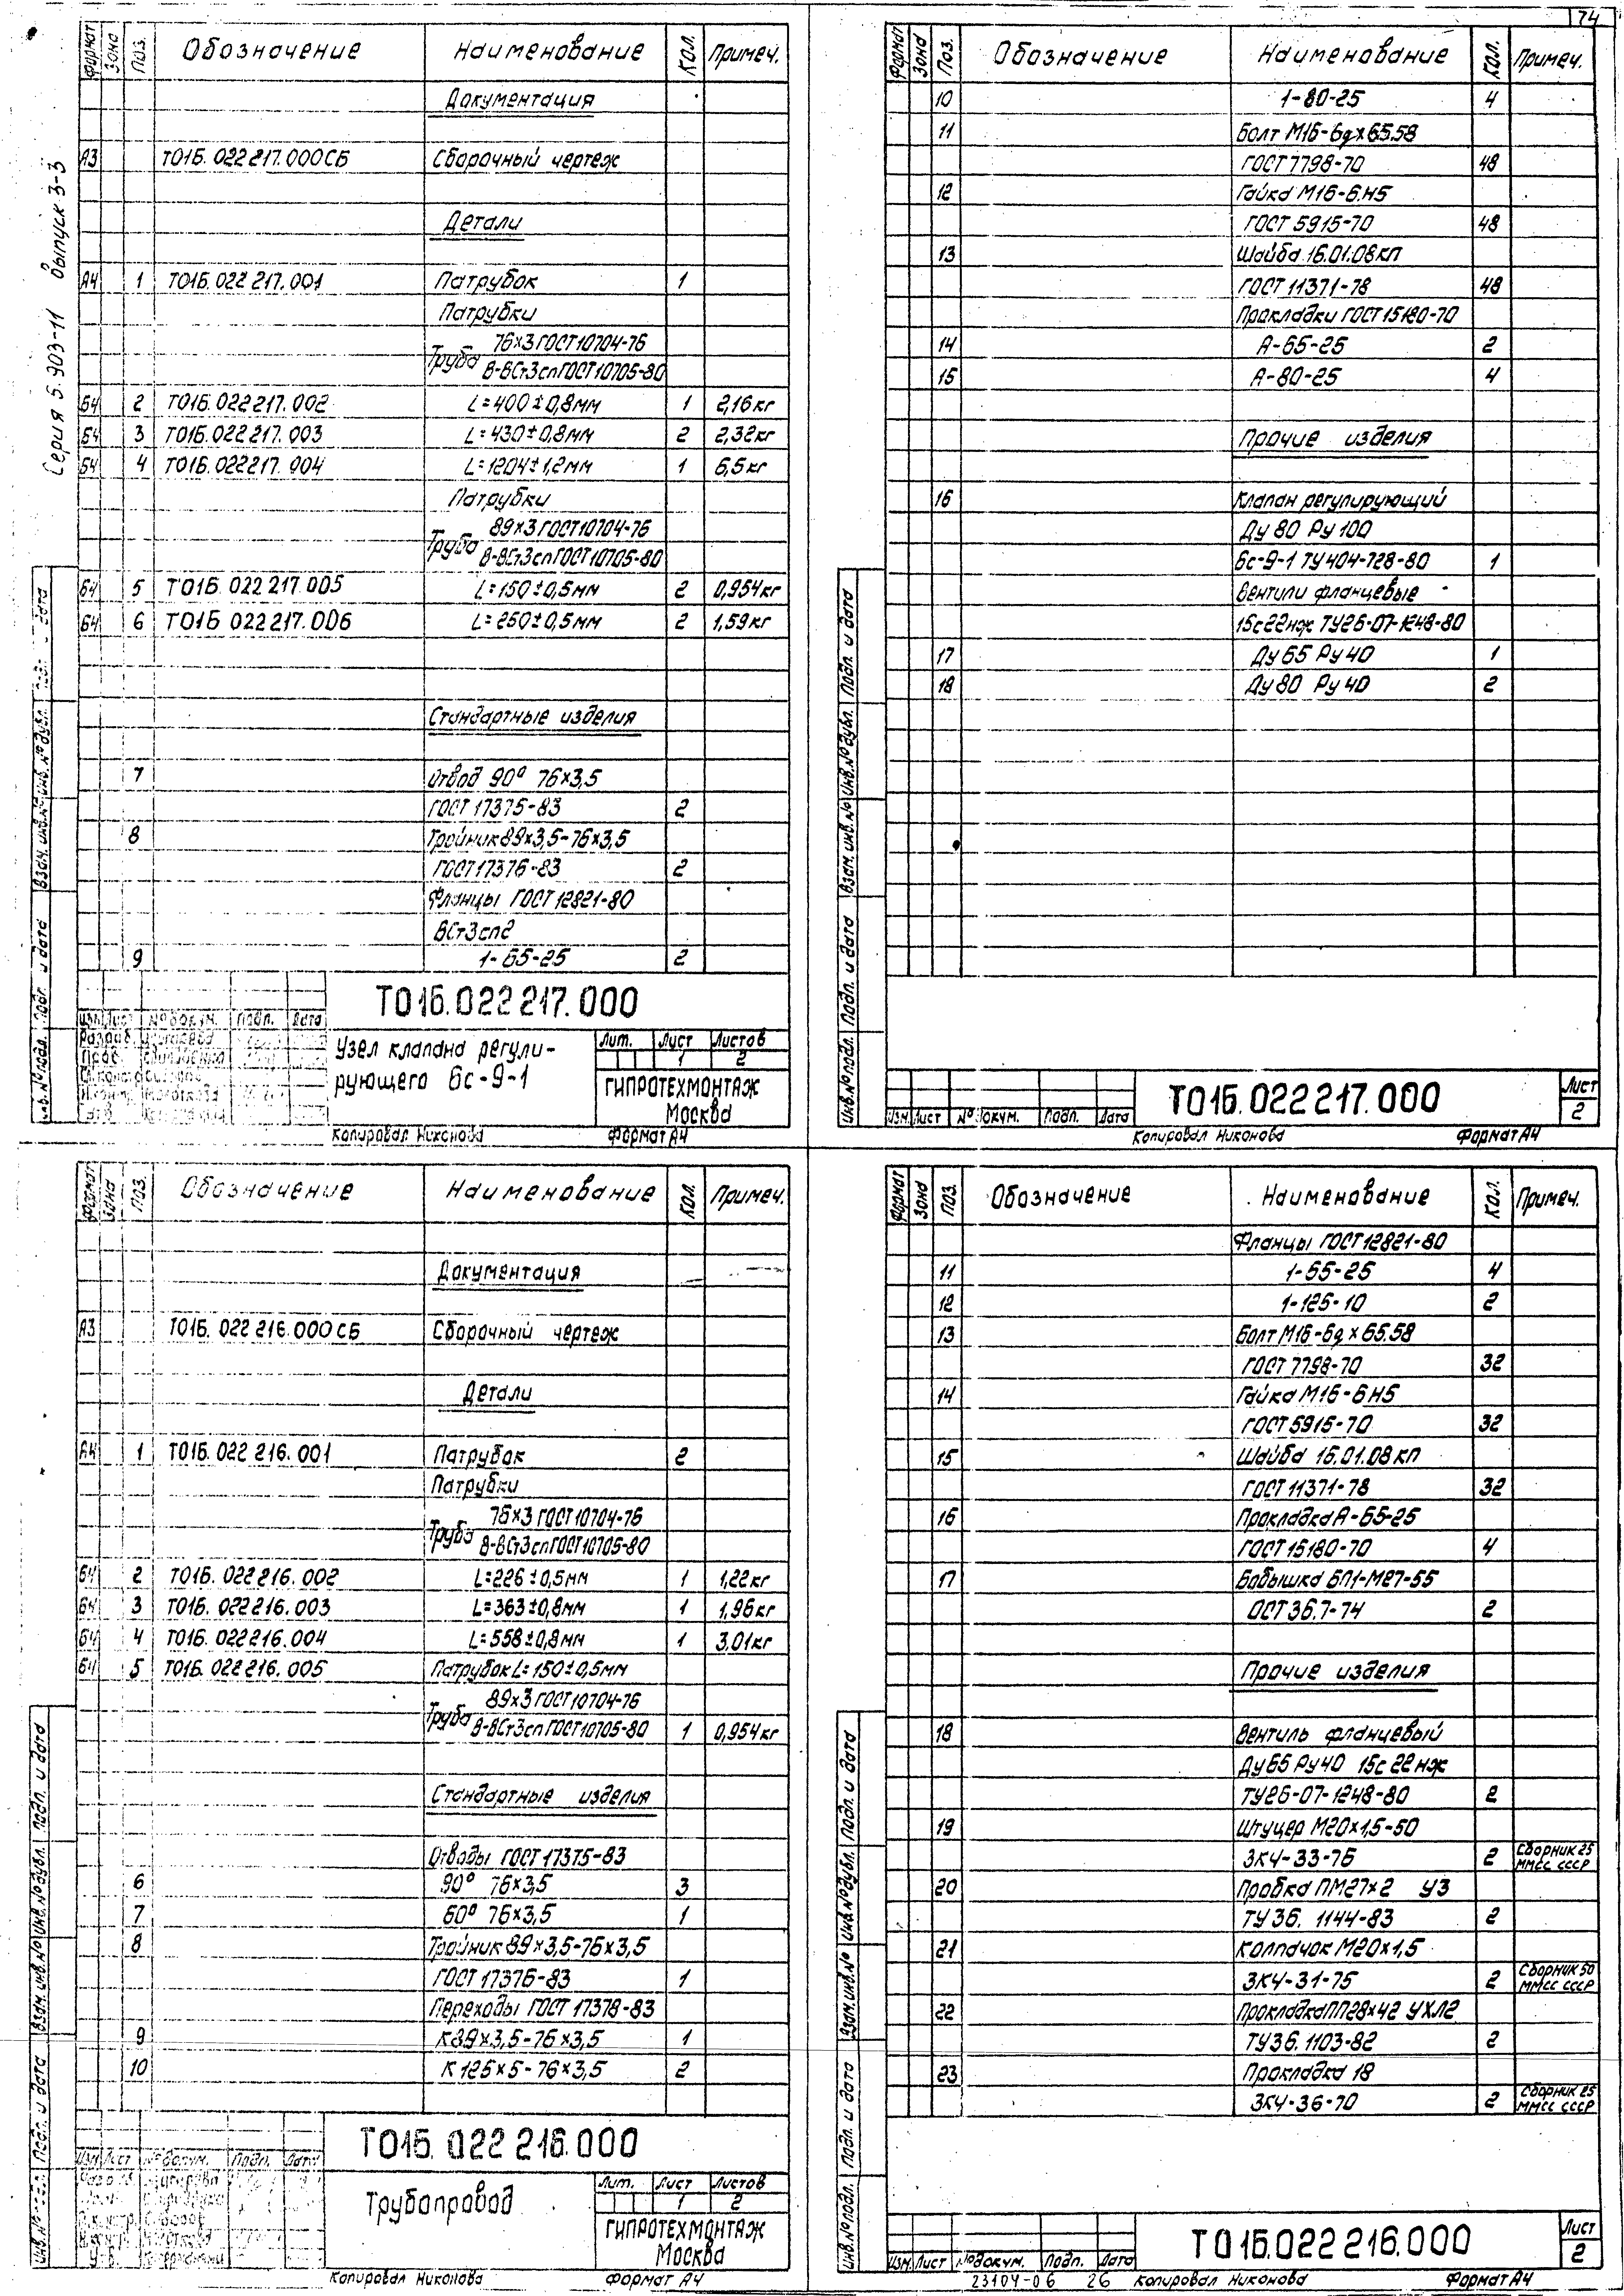 74
Серия 5.903-11 Выпуск 3-3
Формат Зона Поз. Обозначение Наименование Кол. Примеч.
Документация
А3 Т01Б.022 217.000СБ Сборочный чертеж
Детали
А4 1 Т01Б.022 217.001 Патрубок 1
Патрубки
Труба 76×3 ГОСТ 10704-76
В-ВСт3сп ГОСТ 10705-80
Б4 2 Т01Б.022 217.002 L=400±0,8мм 1 2,16кг
Б4 3 Т01Б.022 217.003 L=430±0,8мм 2 2,32кг
Б4 4 Т01Б.022 217.004 L=1204±1,2мм 1 6,5кг
Патрубки
Труба 89×3 ГОСТ 10704-76
В-ВСт3сп ГОСТ 10705-80
Б4 5 Т01Б.022 217.005 L=150±0,5мм 2 0,954кг
Б4 6 Т01Б 022 217.006 L=250±0,5мм 2 1,59кг
Стандартные изделия
7 Отвод 90° 76×3,5
ГОСТ 17375-83 2
8 Тройник 89×3,5-76×3,5
ГОСТ 17376-83 2
Фланцы ГОСТ 12821-80
ВСт3сп2
9 1-65-25 2
Т01Б.022 217.000
Изм. Лист № докум. Подп. Дата
Узел клапана регули-
рующего 6с-9-1
Лит. Лист Листов
1 2
ГИПРОТЕХМОНТАЖ
Москва
Копировал Никонова Формат А4
Формат Зона Поз. Обозначение Наименование Кол. Примеч.
10 1-80-25 4
11 Болт М16-6g×65.58
ГОСТ 7798-70 48
12 Гайка М16-6.Н5
ГОСТ 5915-70 48
13 Шайба 16.01.08кп
ГОСТ 11371-78 48
Прокладки ГОСТ 15180-70
14 А-65-25 2
15 А-80-25 4
Прочие изделия
16 Клапан регулирующий
Ду 80 Ру 100
6с-9-1 ТУ 404-728-80 1
Вентили фланцевые
15с22нж ТУ26-07-1248-80
17 Ду 65 Ру 40 1
18 Ду 80 Ру 40 2
Инв.№ подл. Подп. и дата Взам. инв.№ Инв.№ дубл. Подп. и дата
Изм. Лист № докум. Подп. Дата
Т01Б.022 217.000
Лист
2
Копировал Никонова Формат А4
Формат Зона Поз. Обозначение Наименование Кол. Примеч.
Документация
А3 Т01Б.022 216.000СБ Сборочный чертеж
Детали
А4 1 Т01Б.022 216.001 Патрубок 2
Патрубки
Труба 76×3 ГОСТ 10704-76
В-ВСт3сп ГОСТ 10705-80
Б4 2 Т01Б.022 216.002 L=226±0,5мм 1 1,22кг
Б4 3 Т01Б.022 216.003 L=363±0,8мм 1 1,96кг
Б4 4 Т01Б.022 216.004 L=558±0,8мм 1 3,01кг
Б4 5 Т01Б.022 216.005 Патрубок L=150±0,5мм
Труба 89×3 ГОСТ 10704-76
В-ВСт3сп ГОСТ 10705-80 1 0,954кг
Стандартные изделия
Отводы ГОСТ 17375-83
6 90° 76×3,5 3
7 60° 76×3,5 1
8 Тройник 89×3,5-76×3,5
ГОСТ 17376-83 1
Переходы ГОСТ 17378-83
9 К89×3,5-76×3,5 1
10 К 125×5-76×3,5 2
Т01Б.022 216.000
Изм. Лист № докум. Подп. Дата
Трубопровод
Лит. Лист Листов
1 2
ГИПРОТЕХМОНТАЖ
Москва
Копировал Никонова Формат А4
Формат Зона Поз. Обозначение Наименование Кол. Примеч.
Фланцы ГОСТ 12821-80
11 1-65-25 4
12 1-125-10 2
13 Болт М16-6g×65.58
ГОСТ 7798-70 32
14 Гайка М16-6Н5
ГОСТ 5915-70 32
15 Шайба 16.01.08кп
ГОСТ 11371-78 32
16 Прокладка А-65-25
ГОСТ 15180-70 4
17 Бобышка БП1-М27-55
ОСТ 36.7-74 2
Прочие изделия
18 Вентиль фланцевый
Ду 65 Ру 40 15с22нж
ТУ26-07-1248-80 2
19 Штуцер М20×1,5-50
ЗК4-33-75 2 Сборник 25 ММСС СССР
20 Пробка ПМ27×2 У3
ТУ 36. 1144-83 2
21 Колпачок М20×1,5
ЗК4-31-75 2 Сборник 50 ММСС СССР
22 Прокладка ПП28×42 УХЛ2
ТУ36.1103-82 2
23 Прокладка 18
ЗК4-36-70 2 Сборник 25 ММСС СССР
Инв.№ подл. Подп. и дата Взам. инв.№ Инв.№ дубл. Подп. и дата
Изм. Лист № докум. Подп. Дата
Т01Б.022 216.000
Лист
2
23104-06 26 Копировал Никонова Формат А4